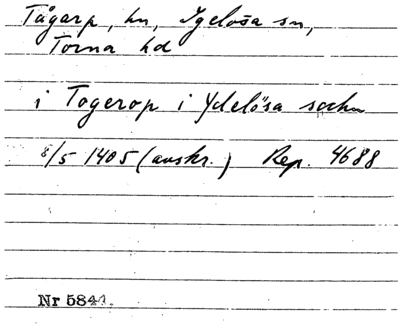 Tågarp, hn, Igelösa sn,
Torna hd
i Togerop i Ydelösa sochn
8/5 1405 (avskr.) Rep. 4688
Nr 5844.